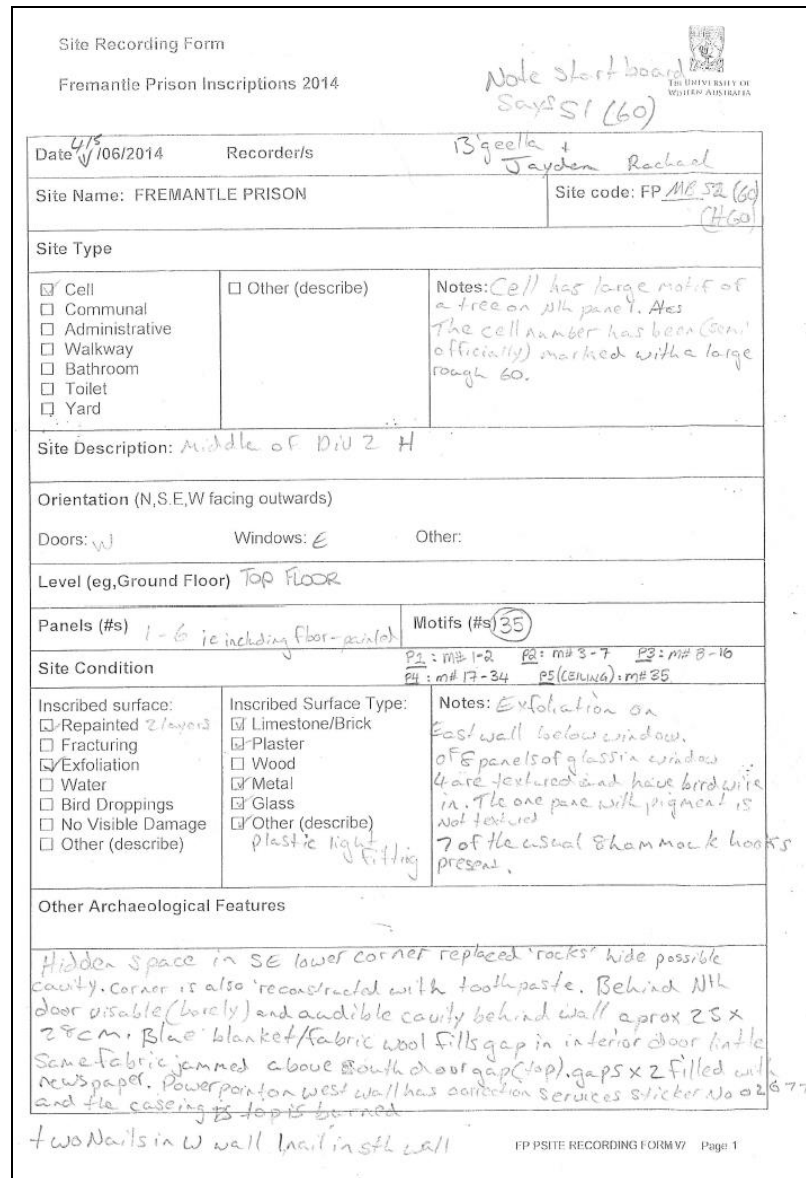 Site Recording Form
Fremantle Prison Inscriptions 2014
Note start board
Says S1 (60)
THE UNIVERSITY OF
WESTERN AUSTRALIA
Date 4/5/06/2014 Recorder/s B'geella +
Jayden Rachael
Site Name: FREMANTLE PRISON Site code: FP MB S2 (60)
(H60)
Site Type
☑ Cell
☐ Communal
☐ Administrative
☐ Walkway
☐ Bathroom
☐ Toilet
☐ Yard
☐ Other (describe)
Notes: Cell has large motif of
a tree on Nth panel.
The cell number has been (semi
officially) marked with a large
rough 60.
Site Description: Middle of DIV 2 H
Orientation (N,S.E,W facing outwards)
Doors: W Windows: E Other:
Level (eg,Ground Floor) TOP FLOOR
Panels (#s) 1-6 ie including floor-painted Motifs (#s) 35
Site Condition P1: m# 1-2 P2: m# 3-7 P3: m# 8-16
P4: m# 17-34 P5(CEILING): m#35
Inscribed surface:
☑ Repainted 2 layers
☐ Fracturing
☑ Exfoliation
☐ Water
☐ Bird Droppings
☐ No Visible Damage
☐ Other (describe)
Inscribed Surface Type:
☑ Limestone/Brick
☑ Plaster
☐ Wood
☑ Metal
☑ Glass
☑ Other (describe)
plastic light
fitting
Notes: Exfoliation on
East wall below window.
of 5 panels of glass in window
4 are textured and have bird wire
in. The one pane with pigment is
not textured
7 of the usual 8 hammock hooks
present.
Other Archaeological Features
Hidden space in SE lower corner replaced 'rocks' hide possible
cavity. corner is also 'reconstructed with toothpaste. Behind Nth
door visable (barely) and audible cavity behind wall aprox 25 x
28cm. Blue blanket/fabric wool fills gap in interior door lintle
Same fabric jammed above south door gap (top). gaps x 2 filled with
newspaper. Powerpoint on west wall has correction services sticker No 02677
and the caseing is top is burned
two Nails in W wall 1 nail in sth wall
FP PSITE RECORDING FORM V7 Page 1